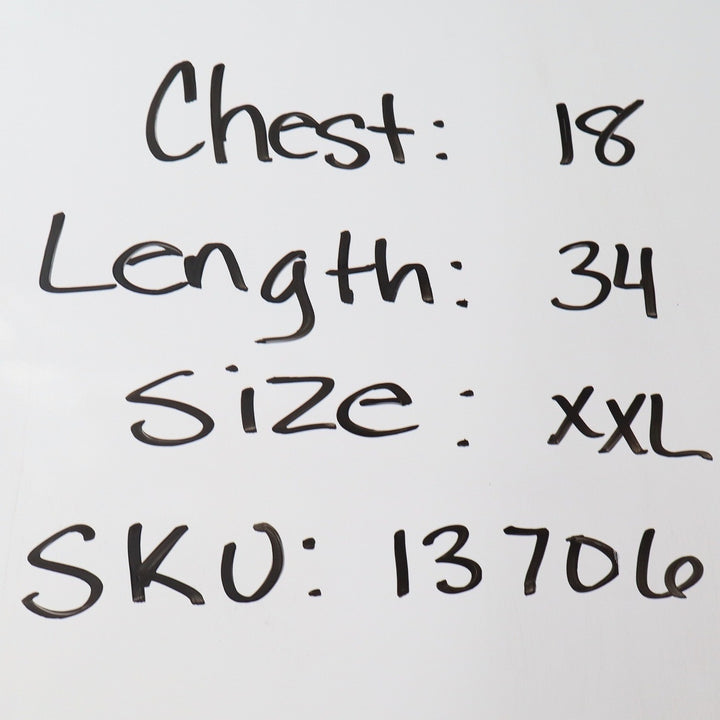 Chest: 18
Length: 34
Size: XXL
SKU: 13706